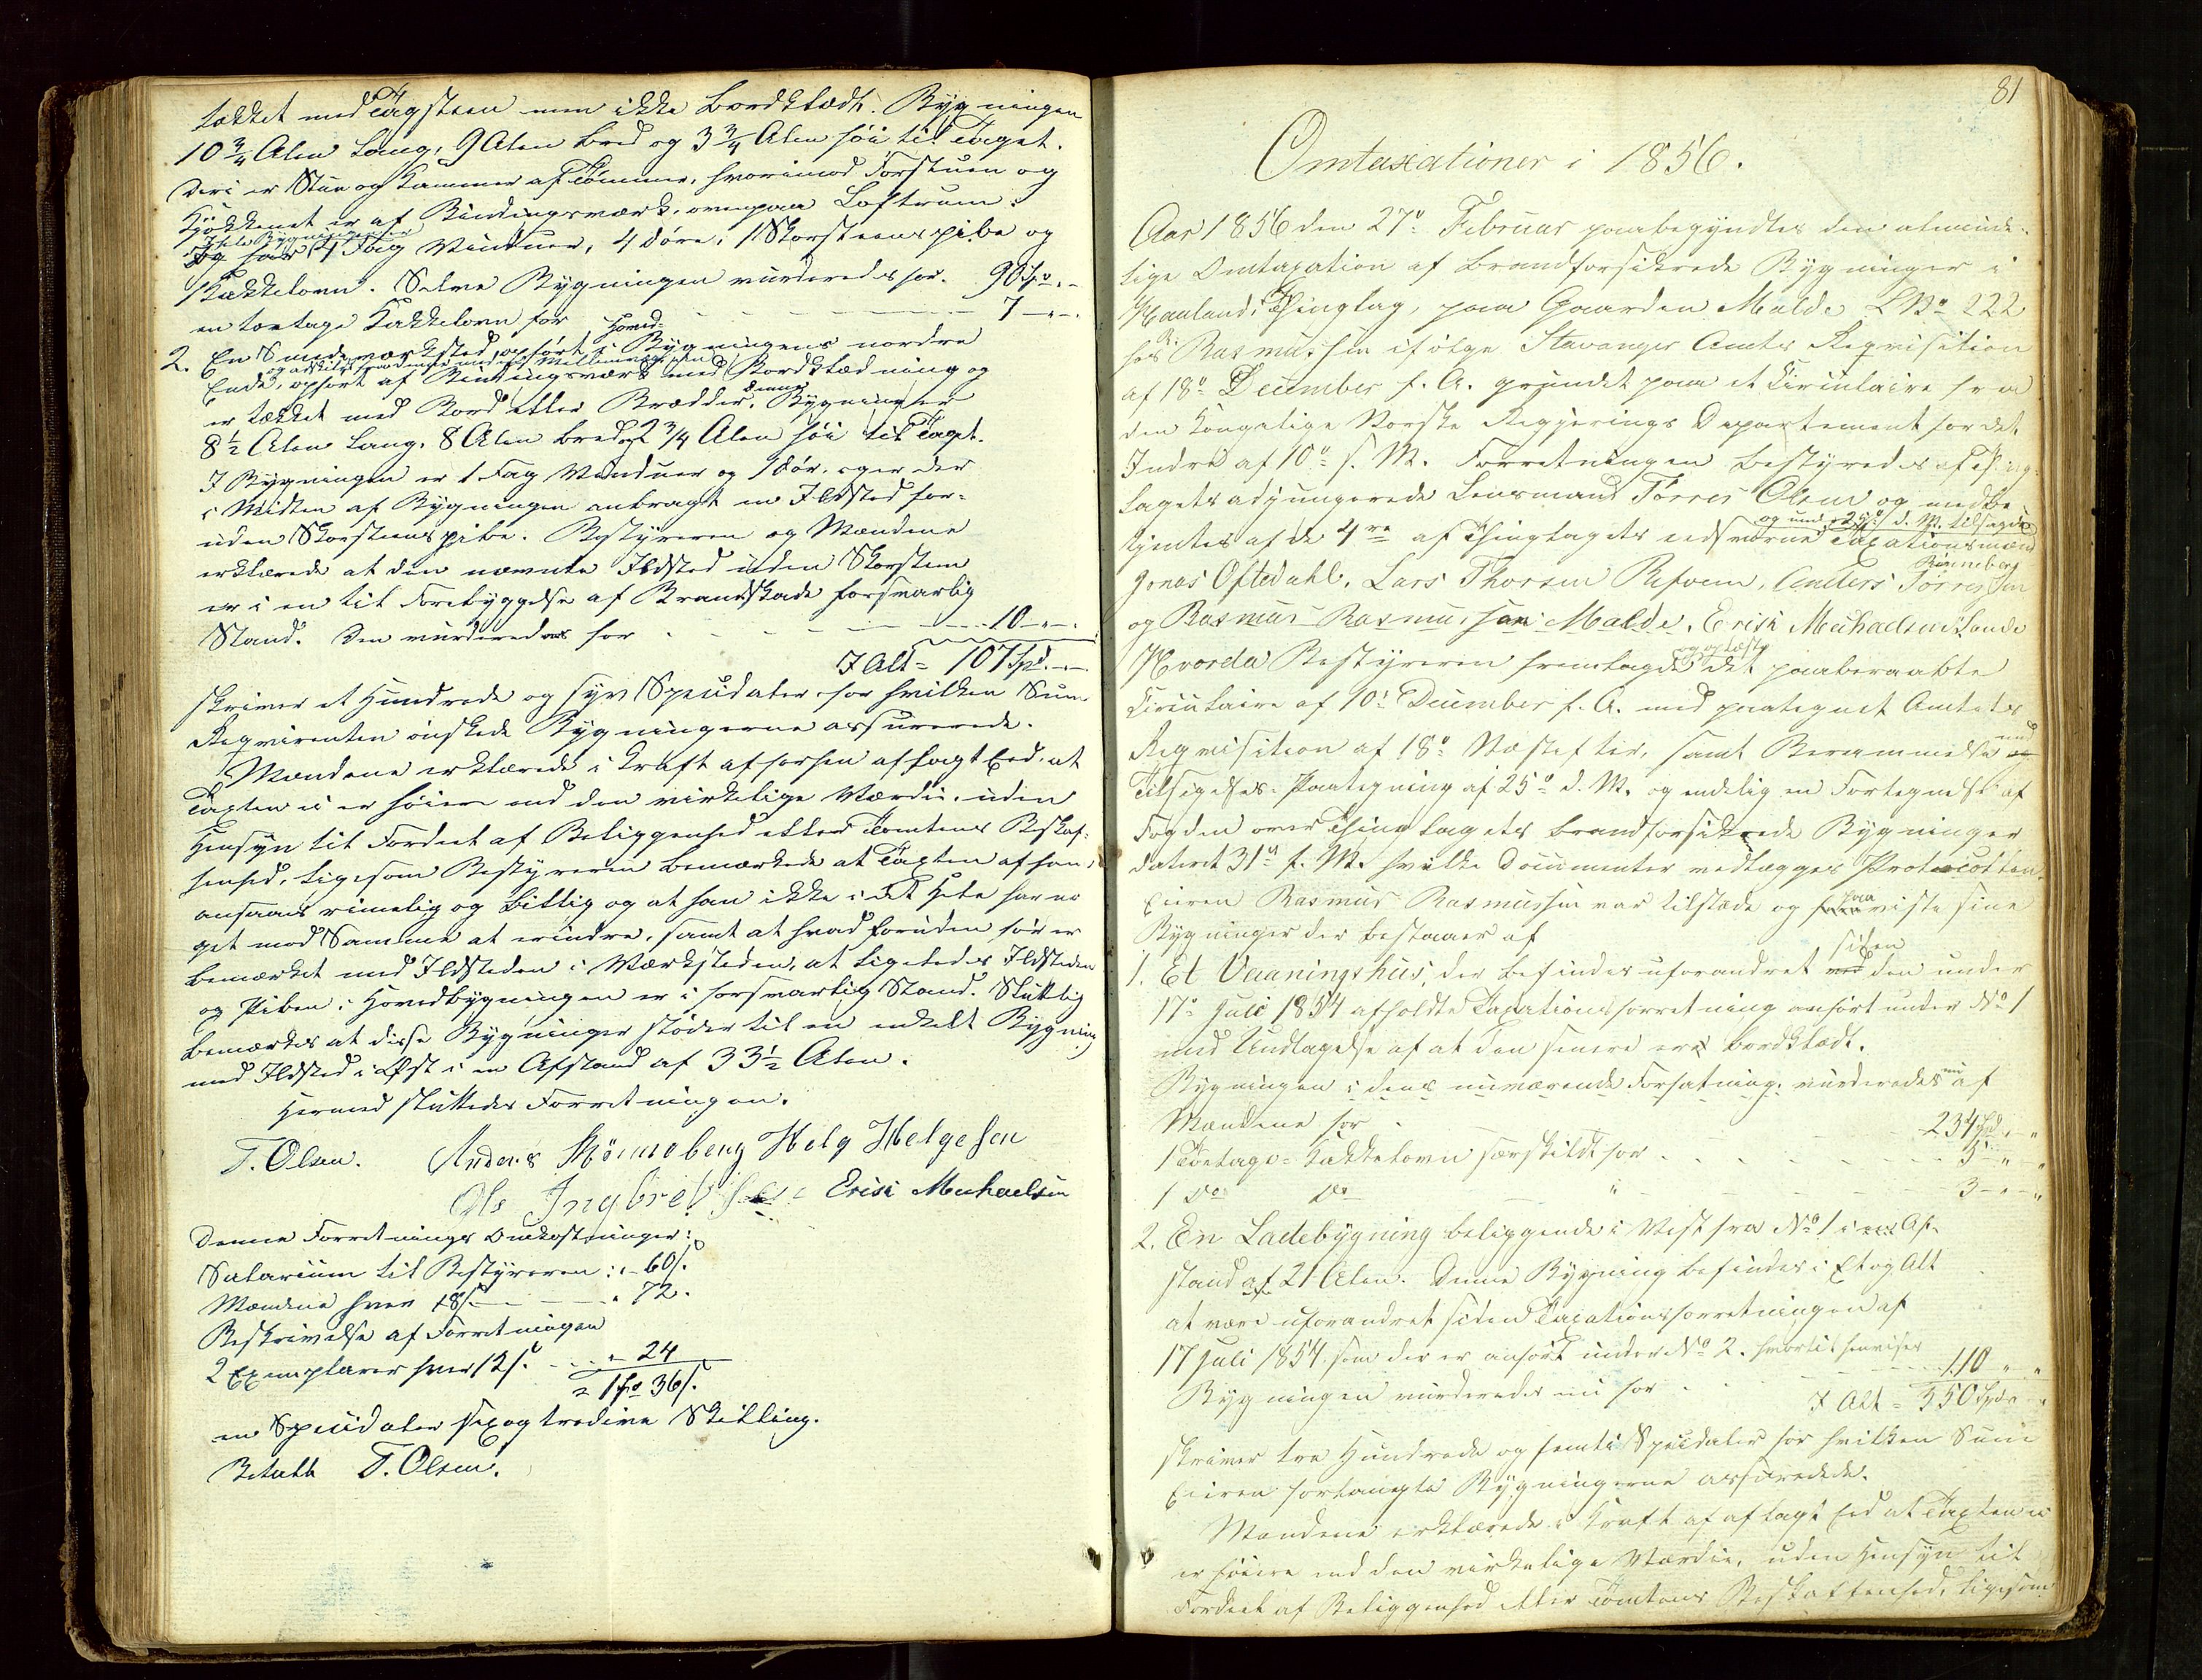 tækket med Tagsteen men ikke bordklædt. Bygningen
10 3/4 Alen lang, 9 Alen bred og 3 3/4 Alen höi til Taget.
Deri er Stue og Kammer af Tömmer, hvorimod Forstuen og
Kjökkenet er af Bindingsværk, ovenpaa Loftrum.
I hele Bygningen er
4 Fag Vinduer, 4 Döre, 1 Skorsteenspibe og
1 Kakkelovn. Selve Bygningen vurderedes for. 90 Spd. " -
en toetages Kakkelovn for - - - - 7 - " -
2. En Smedeværksted, opfört i Hoved-Bygningens nordre
og adskilt fra denne med Mellemvæg
Ende, opfört af Bindingsværk med Bordklædning og
er tækket med Bord eller Brædder. Denne Bygning er
8 1/2 Alen lang, 8 Alen bred og 2 3/4 Alen höi til Taget.
I Bygningen er 1 Fag Vinduer og 1 Dör, og er der
i Midten af Bygningen anbragt en Ildsted for-
uden Skorsteenspibe. Bestyreren og Mændene
erklærede at den nævnte Ildsted uden Skorsteen
er i en til Forebyggelse af Brandskade forsvarlig
Stand. Den vurderedes for - - - - 10 - " -
I Alt = 107 Spd. " -
skriver et Hundrede og syv Speciedaler for hvilken Sum
Reqvirenten önskede Bygningerne assurerede.
Mændene erklærede i Kraft af forhen aflagt Eed, at
Taxten ei er höiere end den virkelige Værdie, uden
Hensyn til Fordeel af Beliggenhed eller Tomtens Beskaf-
fenhed, ligesom Bestyreren bemærkede at Taxten af ham
ansaaes rimelig og billig og at han ikke i det Hele har no
get mod Samme at erindre, samt at hvad foruden för er
bemærket med Ildstedet i Værkstedet, at ligeledes Ildstedet
og Piben i Hovedbygningen er i forsvarlig Stand. Sluttelig
bemærkes at disse Bygninger stöder til en enkelt Bygning
med Ildsted i Öst i en Afstand af 33 1/2 Alen.
Hermed sluttedes Forretningen.
T. Olsen. Anders Rönneberg Helg Helgesen
Ole Ingbretsen Erick Michaelsen
Denne Forretnings Omkostninger:
Salarium til Bestyreren : " - 60 s.
Mændene hver 18 s. - - " 72.
Beskrivelse af Forretningen
2 Exemplarer hver 12 s. - - " 24
= 1 Spd 36 s.
en Speciedaler sex og tredive Skilling.
Betalt T. Olsen.
81
Omtaxationer i 1856.
Aar 1856 den 27de Februar paabegyndtes den alminde-
lige Omtaxation af brandforsikrede Bygninger i
Haalands Thinglag, paa Gaarden Malde LNo 222
hos R. Rasmussen ifölge Stavanger Amts Reqvisition
af 18de December f. A. grundet paa et Circulaire fra
den Kongelige Norske Regjerings Departement for det
Indre af 10de s. M. Forretningen bestyredes af Thing-
lagets adjungerede Lensmand Törres Olsen og medbe
og under 25de d. M. tilsagde
tjentes af de 4re af Thinglagets eedsvorne Taxationsmænd
Jonas Oftedahl, Lars Thorsen Refvem, Anders Törressen Rönneberg
og Rasmus Rasmussen Malde, Erick Michaelsen Sande
Hvorda Bestyreren fremlagde og oplæste det paaberaabte
Circulaire af 10de December f. A. med paategnet Amtets
Reqvisition af 18de Næstefter, samt Berammelse med
Tilsigelses-Paategning af 25de d. M. og endelig en Fortegnelse af
Fogden over Thinglagets brandforsikrede Bygninger
dateret 31te f. M. hvilke Documenter vedlægges Protocollen.
Eieren Rasmus Rasmussen var tilstede og paaviste sine
Bygninger der bestaaer af
1. Et Vaaningshus, der befindes uforandret siden den under
17de Juli 1854 afholdte Taxationsforretning anfört under No 1
med Undtagelse af at den senere er bordklædt.
Bygningen i dens nuværende Forfatning vurderedes nu af
Mændene for - - 234 Spd. " "
1 Toetages Kakkelovn særskildt for - - - - 3 - " - "
1 Do Do - " - - 3 - " - "
2. En Ladebygning beliggende i Vest fra No 1 i Af-
stand af 21 Alen. Denne Bygning befindes i Et og Alt
at være uforandret siden Taxationsforretningen af
17 Juli 1854 som der er anfört under No 2. hvortil henvises
Bygningen vurderedes nu for - - - 110 " "
I Alt = 350 Spd. "
skriver tre Hundrede og femti Speciedaler for hvilken Sum
Eieren forlangte Bygningerne assurerede.
Mændene erklærede i Kraft af aflagt Eed at Taxten ei
er höiere end den virkelige Værdie, uden Hensyn til
Fordeel af Beliggenhed eller Tomtens Beskaffenhed, ligesom